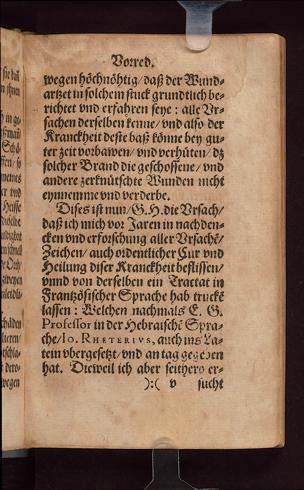 Vorred.
wegen höchnöhtig/ daß der Wund-
artzet in solchem stuck grundtlich be-
richtet vnd erfahren seye: alle Vr-
sachen derselben kenne/ vnd also der
Kranckheit deste baß könne bey gu-
ter zeit vorbawen/ vnd verhüten/ dz
solcher Brand die geschossene/ vnd
andere zerknütschte Wunden nicht
eynnemme vnd verderbe.
Dises ist nun/ G. H. die Vrsach/
daß ich mich vor Jaren in nachden-
cken vnd erforschung aller Vrsachē/
Zeichen/ auch ordentlicher Cur vnd
Heilung diser Kranckheit beflissen/
vnnd von derselben ein Tractat in
Frantzösischer Sprache hab truckē
lassen: Welchen nachmals E. G.
Professor in der Hebraischē Spra-
che/ Io. RHETERIVS, auch ins La-
tein vbergesetzt/ vnd an tag gegeben
hat. Dieweil ich aber seithero er-
):( v sucht